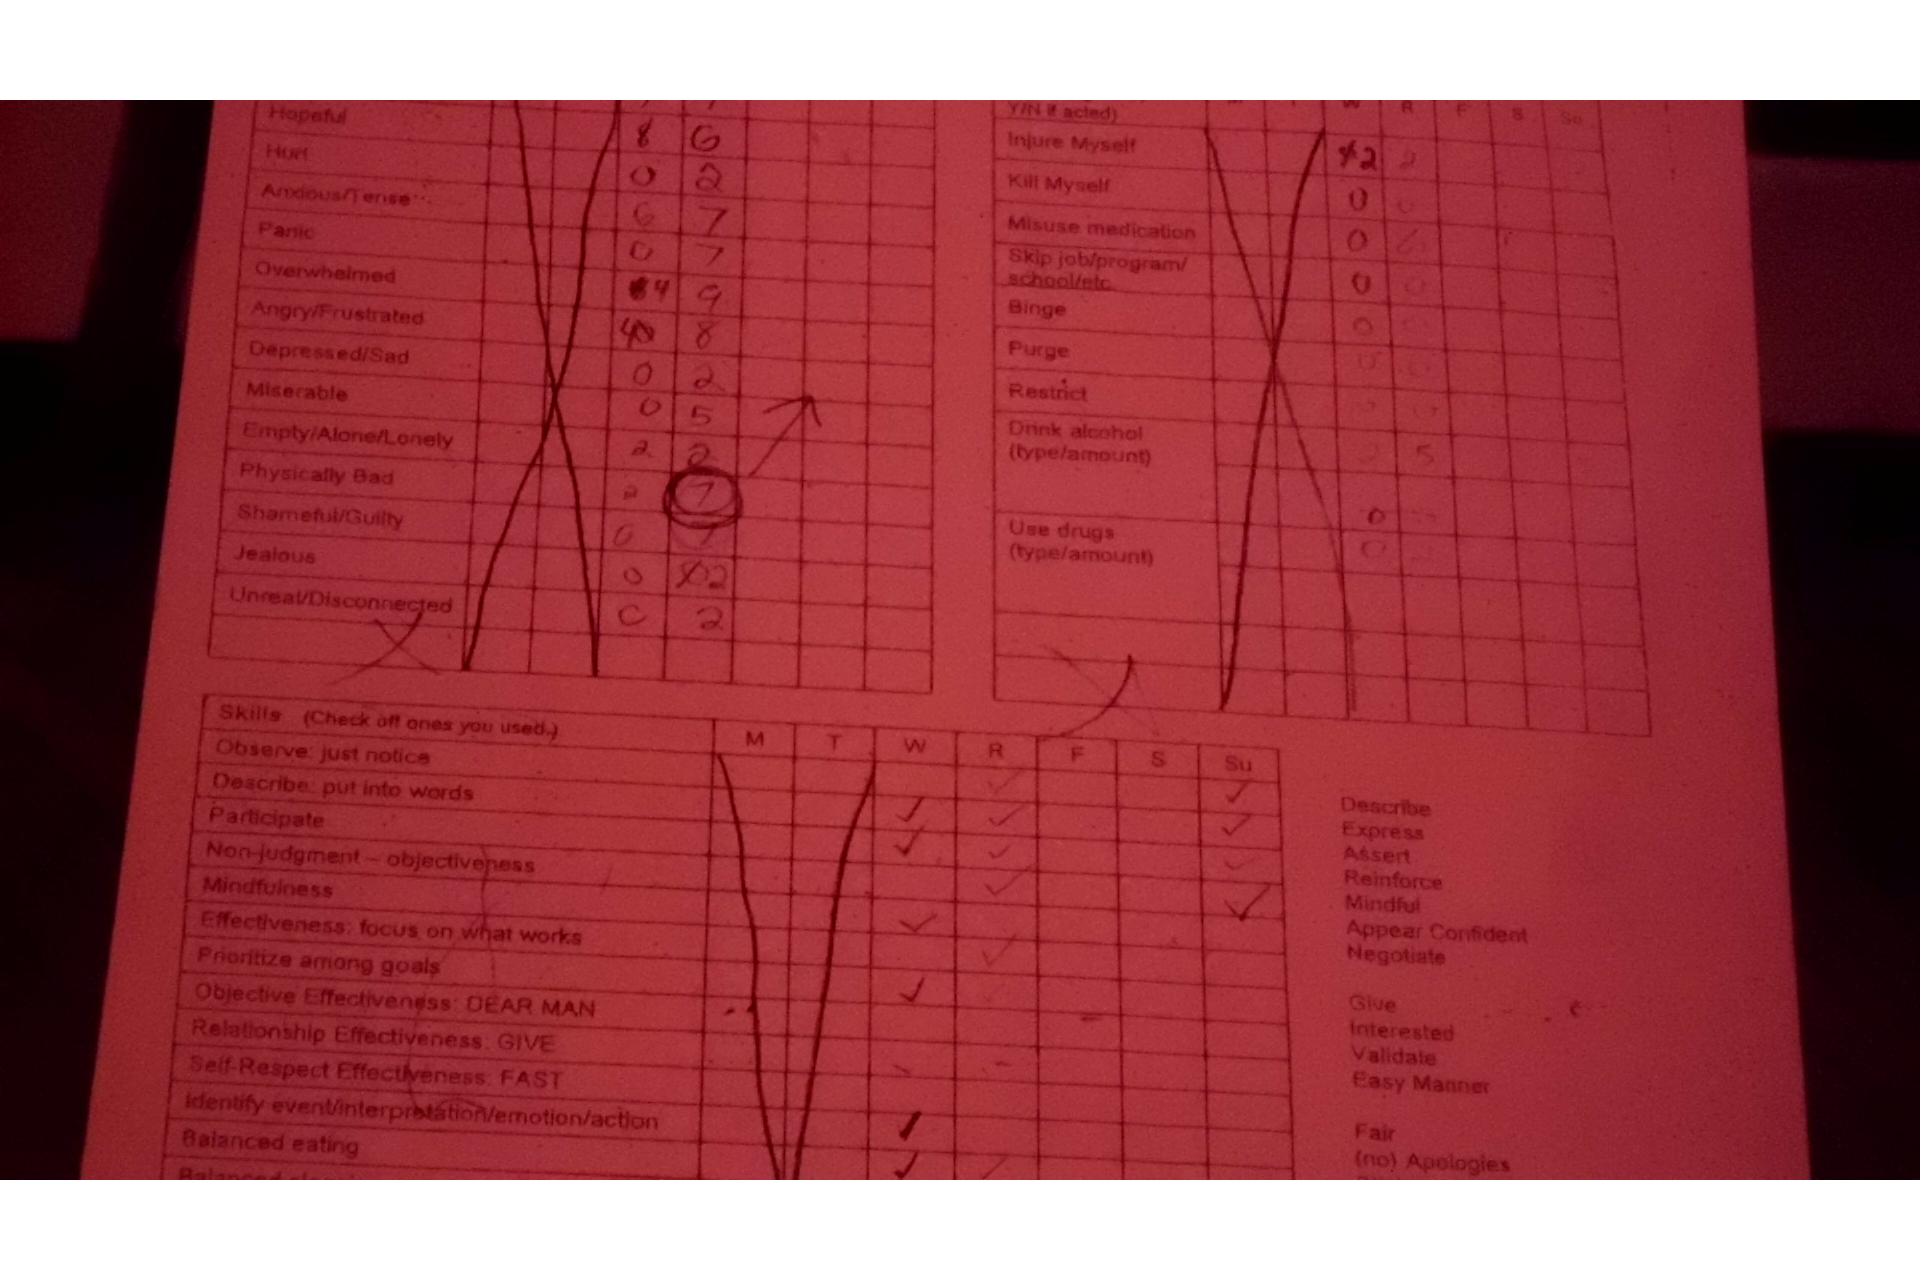 Hopeful 8 6
Hurt 0 2
Anxious/Tense 6 7
Panic 0 7
Overwhelmed 4 9
Angry/Frustrated 4 8
Depressed/Sad 0 2
Miserable 0 5
Empty/Alone/Lonely 2 2
Physically Bad 2 7
Shameful/Guilty 0
Jealous 0 2
Unreal/Disconnected 0 2
Y/N if acted) W R F S Su
Injure Myself 2 2
Kill Myself 0
Misuse medication 0
Skip job/program/
school/etc. 0
Binge 0
Purge 0
Restrict
Drink alcohol
(type/amount) 5
0
Use drugs 0
(type/amount)
Skills (Check off ones you used.) M T W R F S Su
Observe: just notice
Describe: put into words
Participate
Non-judgment – objectiveness
Mindfulness
Effectiveness: focus on what works
Prioritize among goals
Objective Effectiveness: DEAR MAN
Relationship Effectiveness: GIVE
Self-Respect Effectiveness: FAST
Identify event/interpretation/emotion/action
Balanced eating
Balanced
Describe
Express
Assert
Reinforce
Mindful
Appear Confident
Negotiate
Give
Interested
Validate
Easy Manner
Fair
(no) Apologies